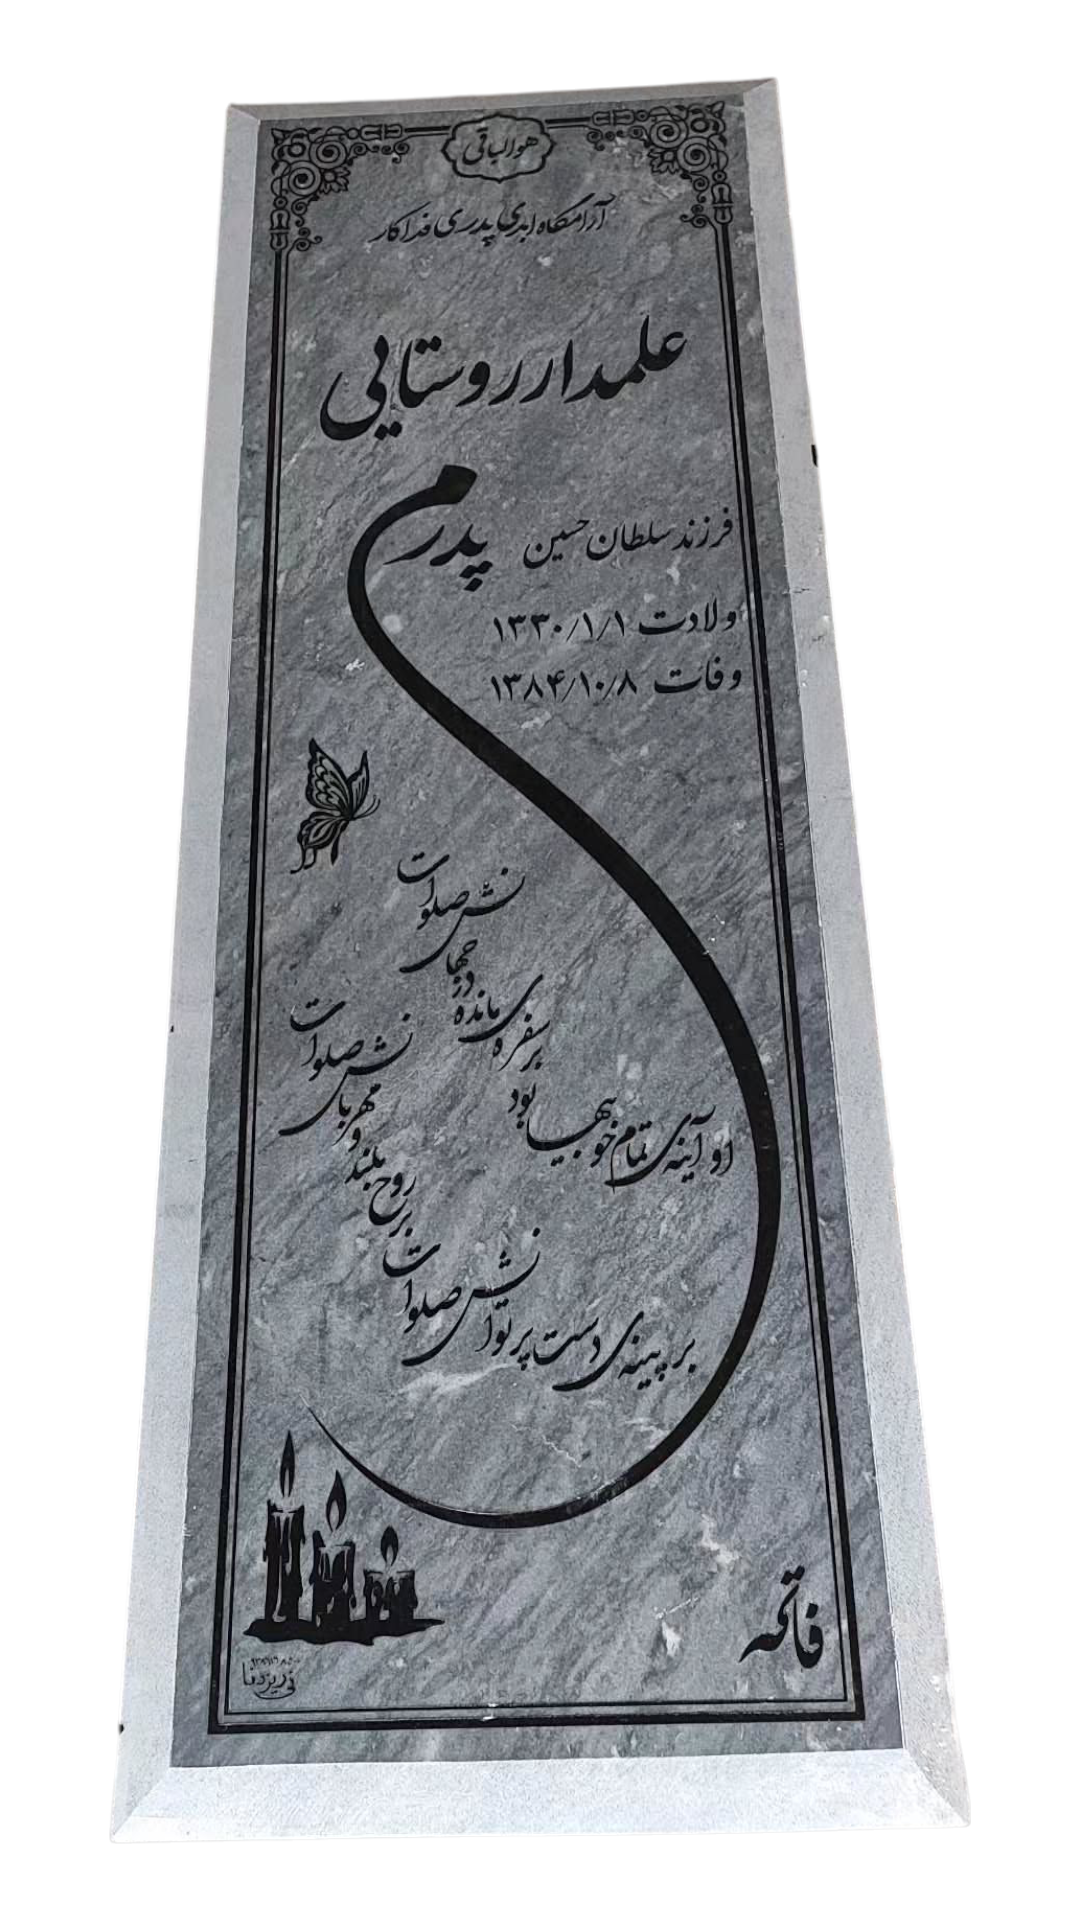 هوالباقی
آرامگاه ابدی پدری فداکار
علمدار روستایی
پدرم
فرزند سلطان حسین
ولادت ۱۳۳۰/۱/۱
وفات ۱۳۸۴/۱۰/۸
او آینه‌ی تمام خوبیها بود
بر سفره‌ی مانده در جهانش صلوات
بر پینه‌ی دست پرتوانش صلوات
بر روح بلند و مهربانش صلوات
فاتحه